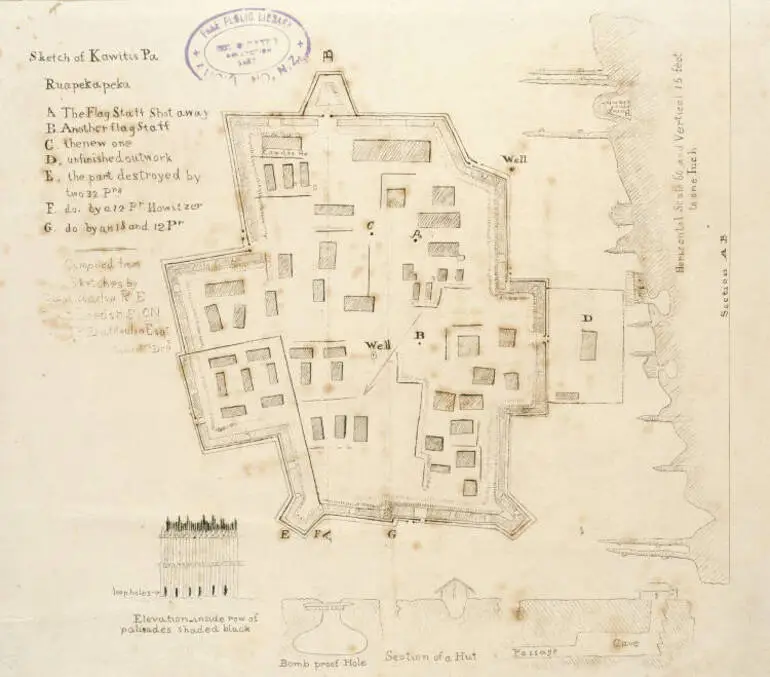 B
FREE PUBLIC LIBRARY
N.Z.
Sketch of Kawitis Pa
Ruapekapeka
A The Flag Staff Shot away
B. Another flag Staff
C. the new one
D, unfinished outwork
E, the part destroyed by
two 32 Prs
F. do. by a 12 Pr Howitzer
G. do by an 18 and 12 Pr
Compiled from
Sketches by
R E
RN
Esqr
Well
C
A
D
B
Well
E
F
A
G
loopholes
Elevation inside row of
palisades shaded black
Bomb proof Hole
Section of a Hut
Passage
Cave
Horizontal Scale 60 and Vertical 15 feet
to one Inch
Section A B